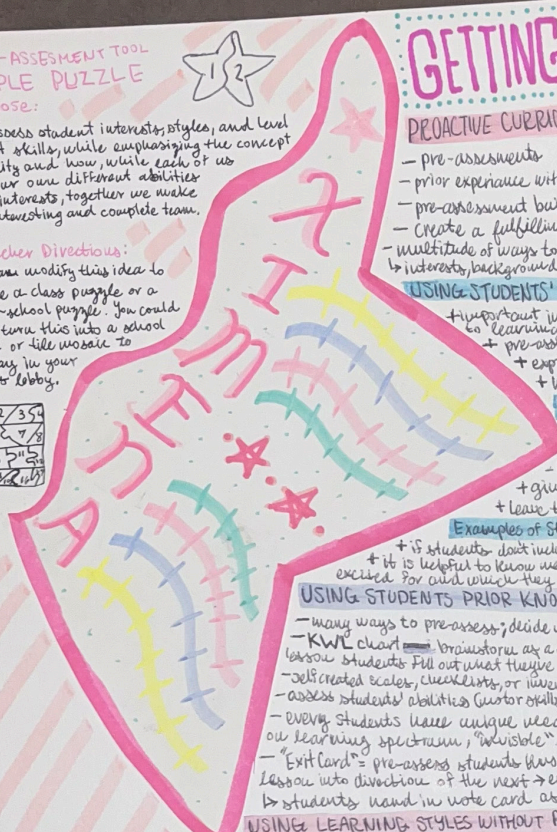 -ASSESMENT TOOL
PLE PUZZLE
ose:
ssess student interests, styles, and level
f skills, while emphasizing the concept
ity and how, while each of us
our own different abilities
interests, together we make
nteresting and complete team.
1 2
cher Directions:
modify this idea to
e a class puzzle or a
school puzzle. You could
turn this into a school
or tile mosaic to
ay in your
lobby.
GETTING
PROACTIVE CURRI
- pre-assesments
- prior experiance wit
- pre-assessment bu
- create a fulfillin
- multitude of ways to
↳ interests, background
USING STUDENTS'
+ important i
to learnin
+ pre-ass
+ exp
+ giv
+ leave t
Examples of S
+ if students don't incl
+ it is helpful to know w
excited for and which they
USING STUDENTS PRIOR KNO
- many ways to pre-assess; decide
- KWL chart brainstorm as a
lesson students fill out what they've
- self created scales, checklists, or inve
- assess students' abilities (motor skills
- every students have unique nee
on learning spectrum, "invisible"
- "Exit Card" = pre-assess students
lesson into direction of the next → e
↳ students hand in note card as
USING LEARNING STYLES WITHOUT